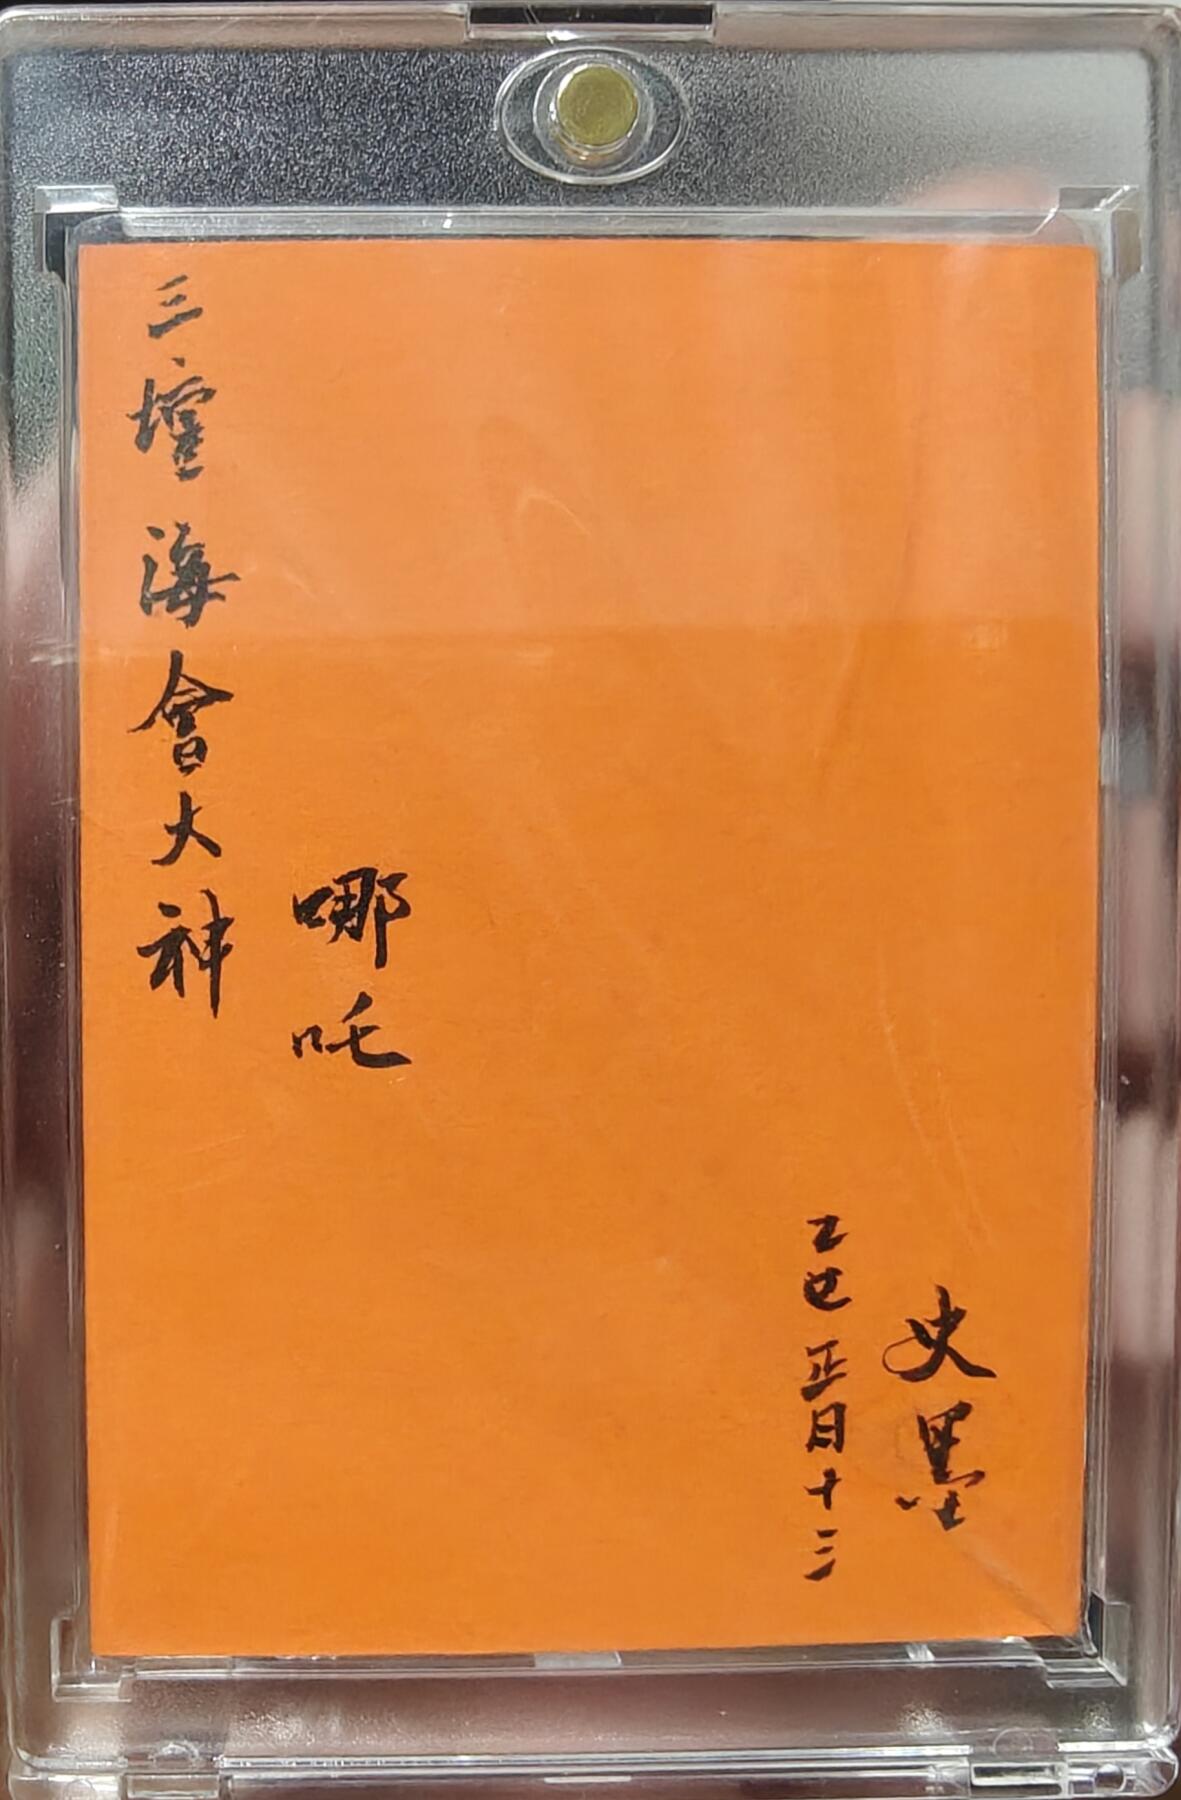 三壇海會大神
哪吒
乙巳正月十三
史墨